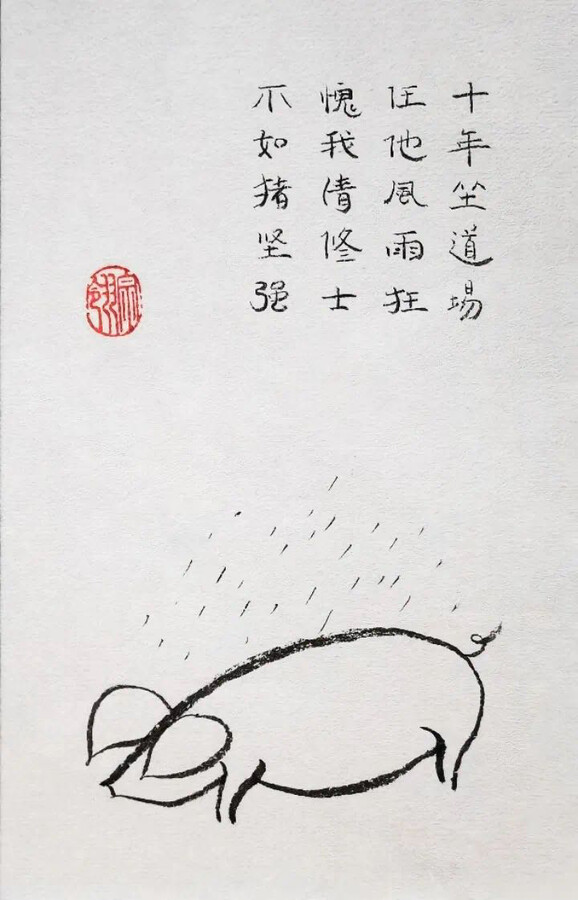 十年坐道場
任他風雨狂
愧我清修士
不如猪坚强